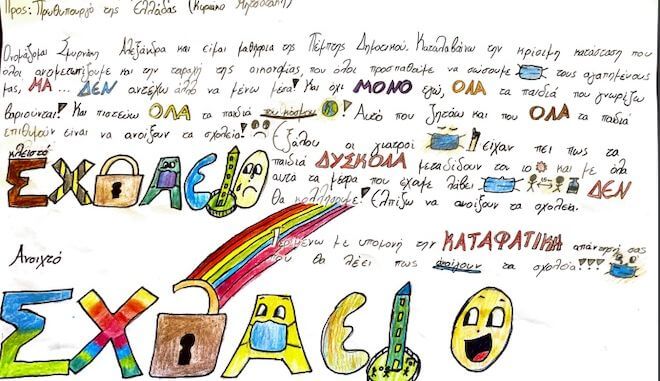 Προς: Πρωθυπουργό της Ελλάδας (Κυριάκο Μητσοτάκη)
Ονομάζομαι Σμυρνάκη Αλεξάνδρα και είμαι μαθήτρια της Πέμπτης Δημοτικού. Καταλαβαίνω την κρίσιμη κατάσταση που
όλοι αντιμετωπίζουμε και την ταραχή της οικογένειας που όλοι προσπαθούμε να σώσουμε τους αγαπημένους
μας, ΜΑ ... ΔΕΝ αντέχω άλλο να μένω μέσα! Και όχι ΜΟΝΟ εγώ, ΟΛΑ τα παιδιά που γνωρίζω
βαριούνται! Και πιστεύω ΟΛΑ τα παιδιά του κόσμου! Αυτό που ζητάω και που ΟΛΑ τα παιδιά
επιθυμούν είναι να ανοίξουν τα σχολεία! Εξάλλου οι γιατροί είχαν πει πως τα
παιδιά ΔΥΣΚΟΛΑ μεταδίδουν τον ιό και με όλα
αυτά τα μέτρα που έχουμε λάβει ΔΕΝ
θα κολλήσουμε! Ελπίζω να ανοίξουν τα σχολεία.
κλειστό
ΣΧΟΛΕΙΟ
Περιμένω με υπομονή την ΚΑΤΑΦΑΤΙΚΗ απάντησή σας
που θα λέει πως ανοίγουν τα σχολεία!!!
Ανοιχτό
ΣΧΟΛΕΙΟ